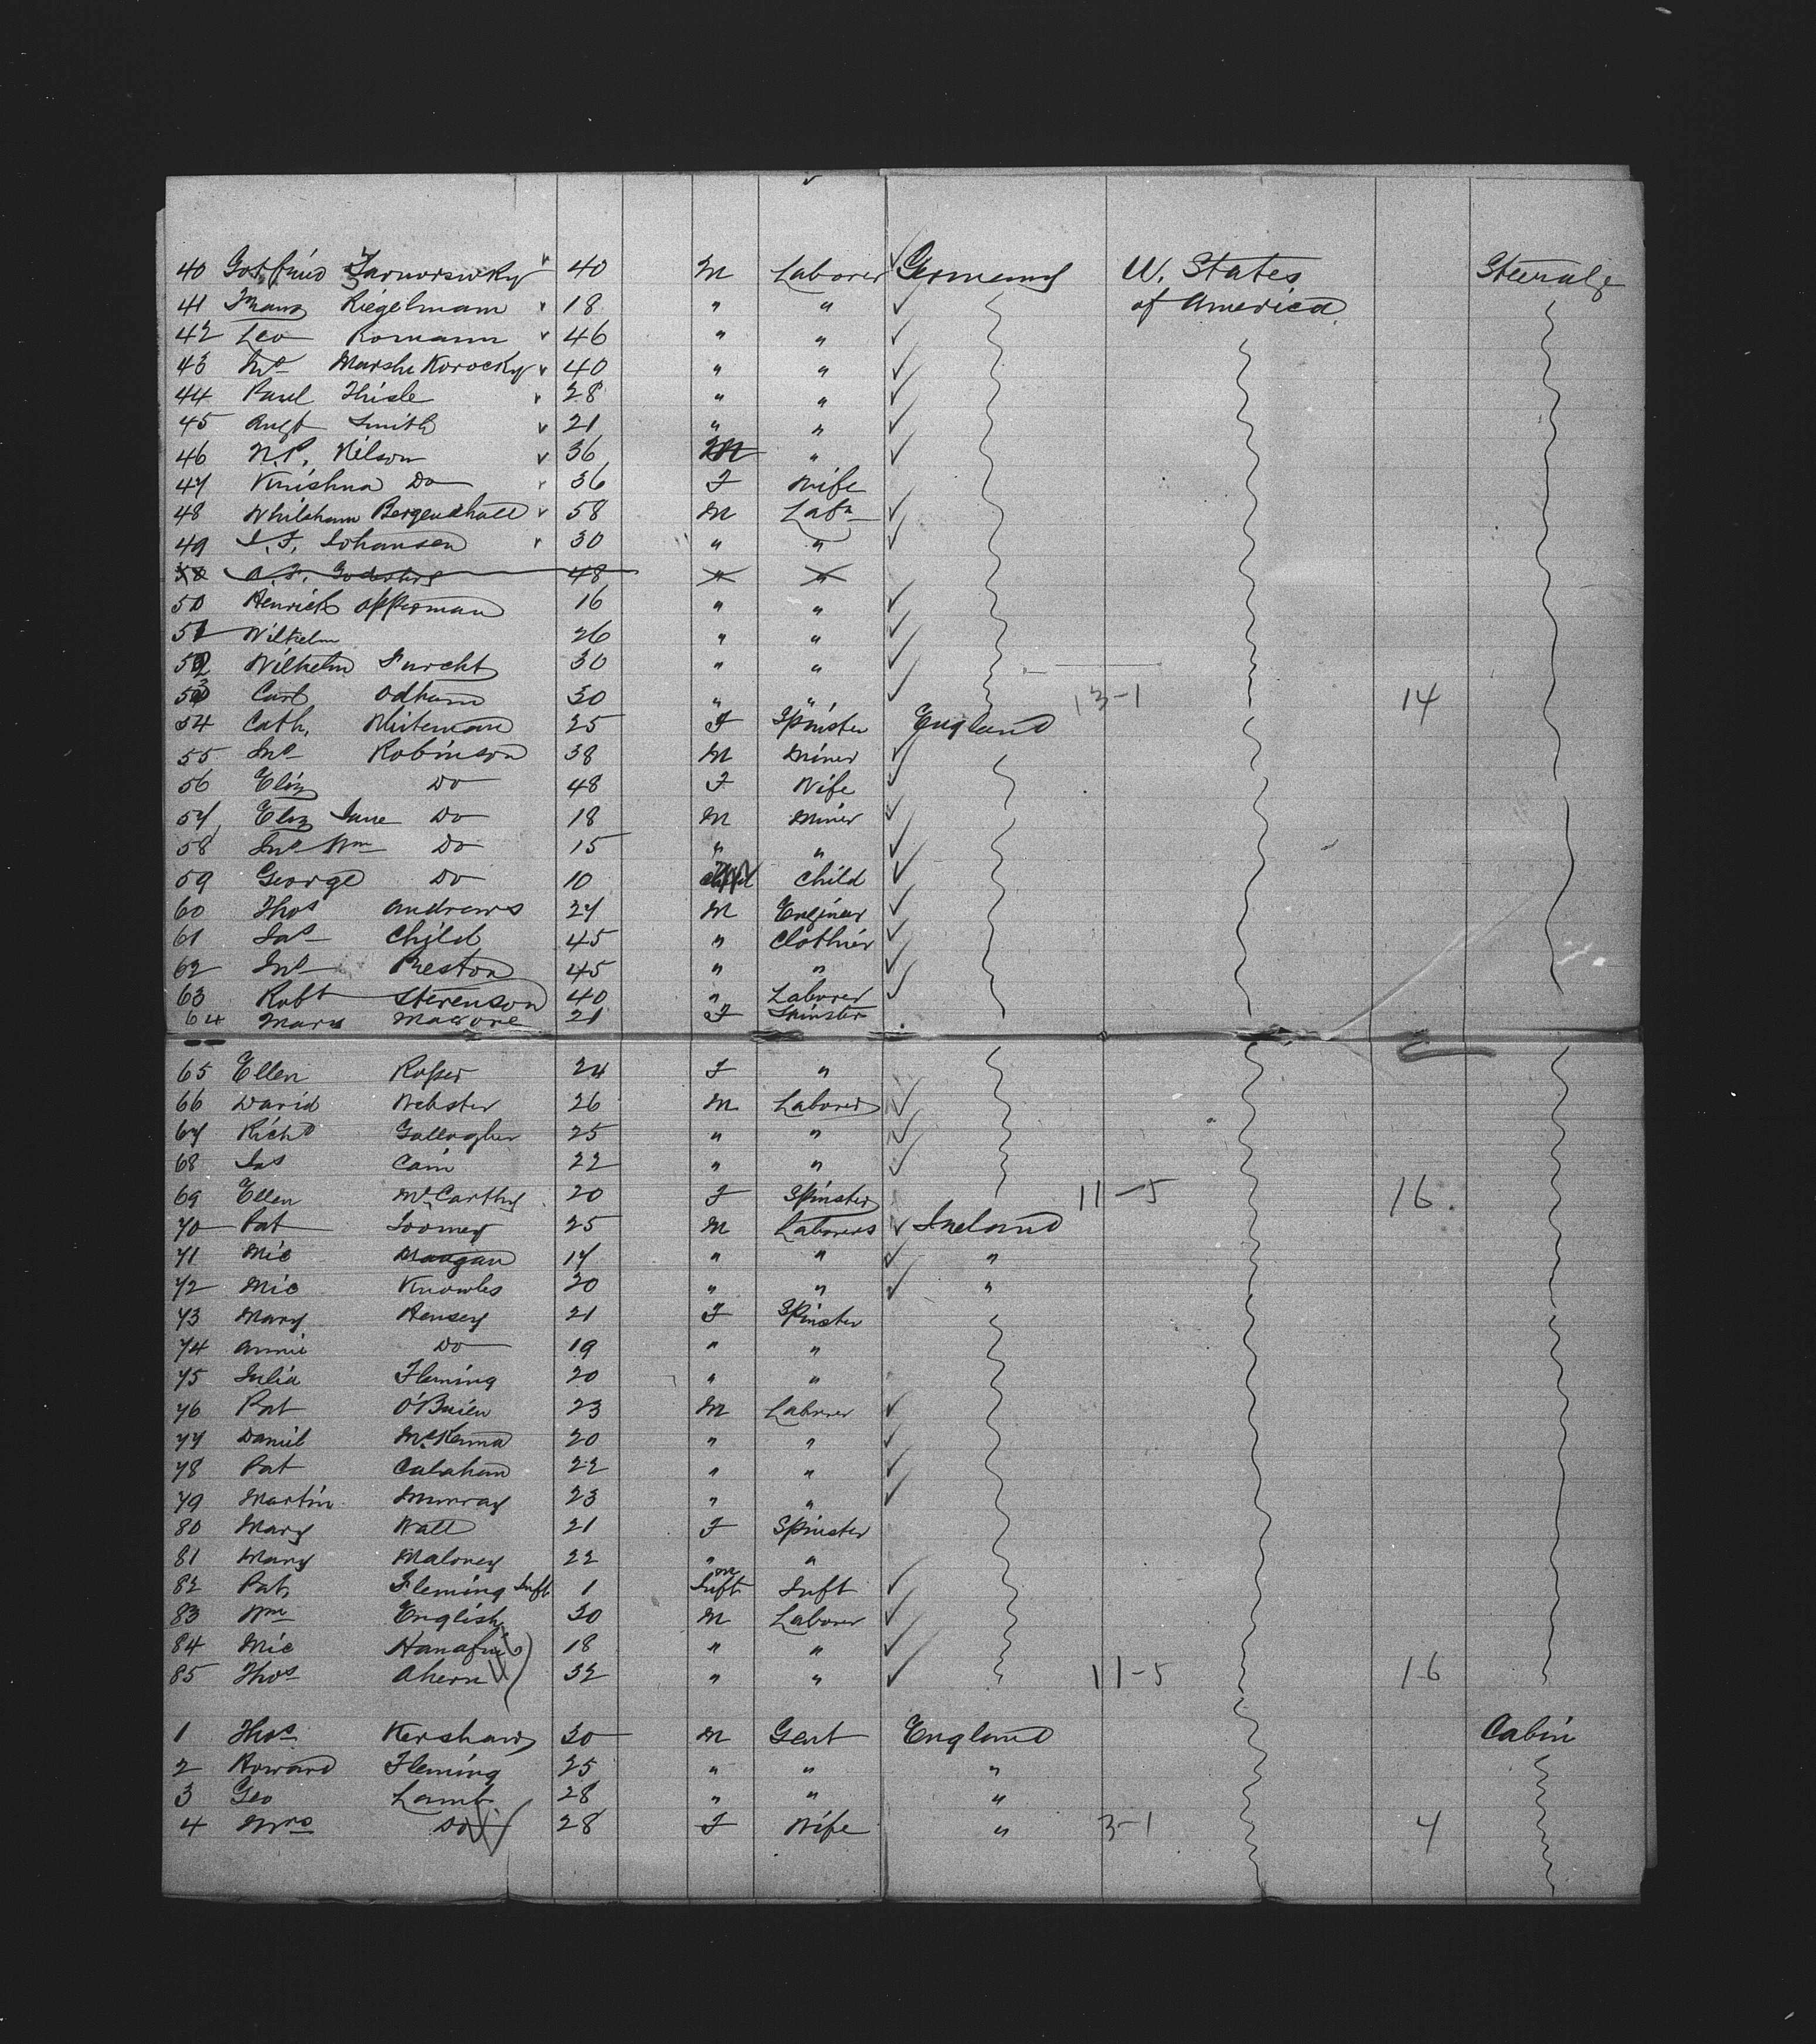 40 Gotfried Tarnorswky 40 M Laborer Germany U. States Steerage
41 Franz Riegelmann 18 " " of America
42 Leo Romann 46 " "
43 Jno Marshe Korocky 40 " "
44 Paul Thisle 28 " "
45 Augt Smith 21 " "
46 N.P. Nilson 36 M "
47 Krishna Do 36 F Wife
48 Whilsham Bergendhall 58 M Labr
49 J. F. Johansen 30 " "
48 " "
50 Henrich Opperman 16 " "
51 Wilhelm 26 " "
52 Wilhelm Furcht 30 " "
53 Carl Odham 30 " " 13-1 14
54 Cath. Miteman 25 F Spinster England
55 Jno Robinson 38 M Miner
56 Eliz Do 48 F Wife
57 Eliz Jane Do 18 M Miner
58 Jno Wm Do 15 " "
59 George Do 10 Child
60 Thos Andrews 27 M Engineer
61 Jas Child 45 " Clothier
62 Jno Preston 45 " "
63 Robt Stevenson 40 " Laborer
64 Mary Magore 21 F Spinster
65 Ellen Roper 24 F "
66 David Webster 26 M Laborer
67 Richd Gallagher 25 " "
68 Jas Cain 22 " "
69 Ellen McCarthy 20 F Spinster 11-5 16
70 Pat Toomey 25 M Laborers Ireland
71 Mic Mangan 17 " " "
72 Mic Knowles 20 " " "
73 Mary Hensey 21 F Spinster
74 Annie Do 19 " "
75 Julia Fleming 20 " "
76 Pat O'Brien 23 M Laborer
77 Daniel McKenna 20 " "
78 Pat Calahan 22 " "
79 Martin Murray 23 " "
80 Mary Wall 21 F Spinster
81 Mary Maloney 22 " "
82 Pat Fleming Inft 1 Inft m Inft
83 Wm English 30 M Laborer
84 Mic Hanafin 18 " "
85 Thos Ahern 32 " " 11-5 16
1 Thos Kershaw 30 M Gent England Cabin
2 Howard Fleming 25 " " "
3 Geo Lamb 28 " " "
4 Mrs Do 28 F Wife " 3-1 4